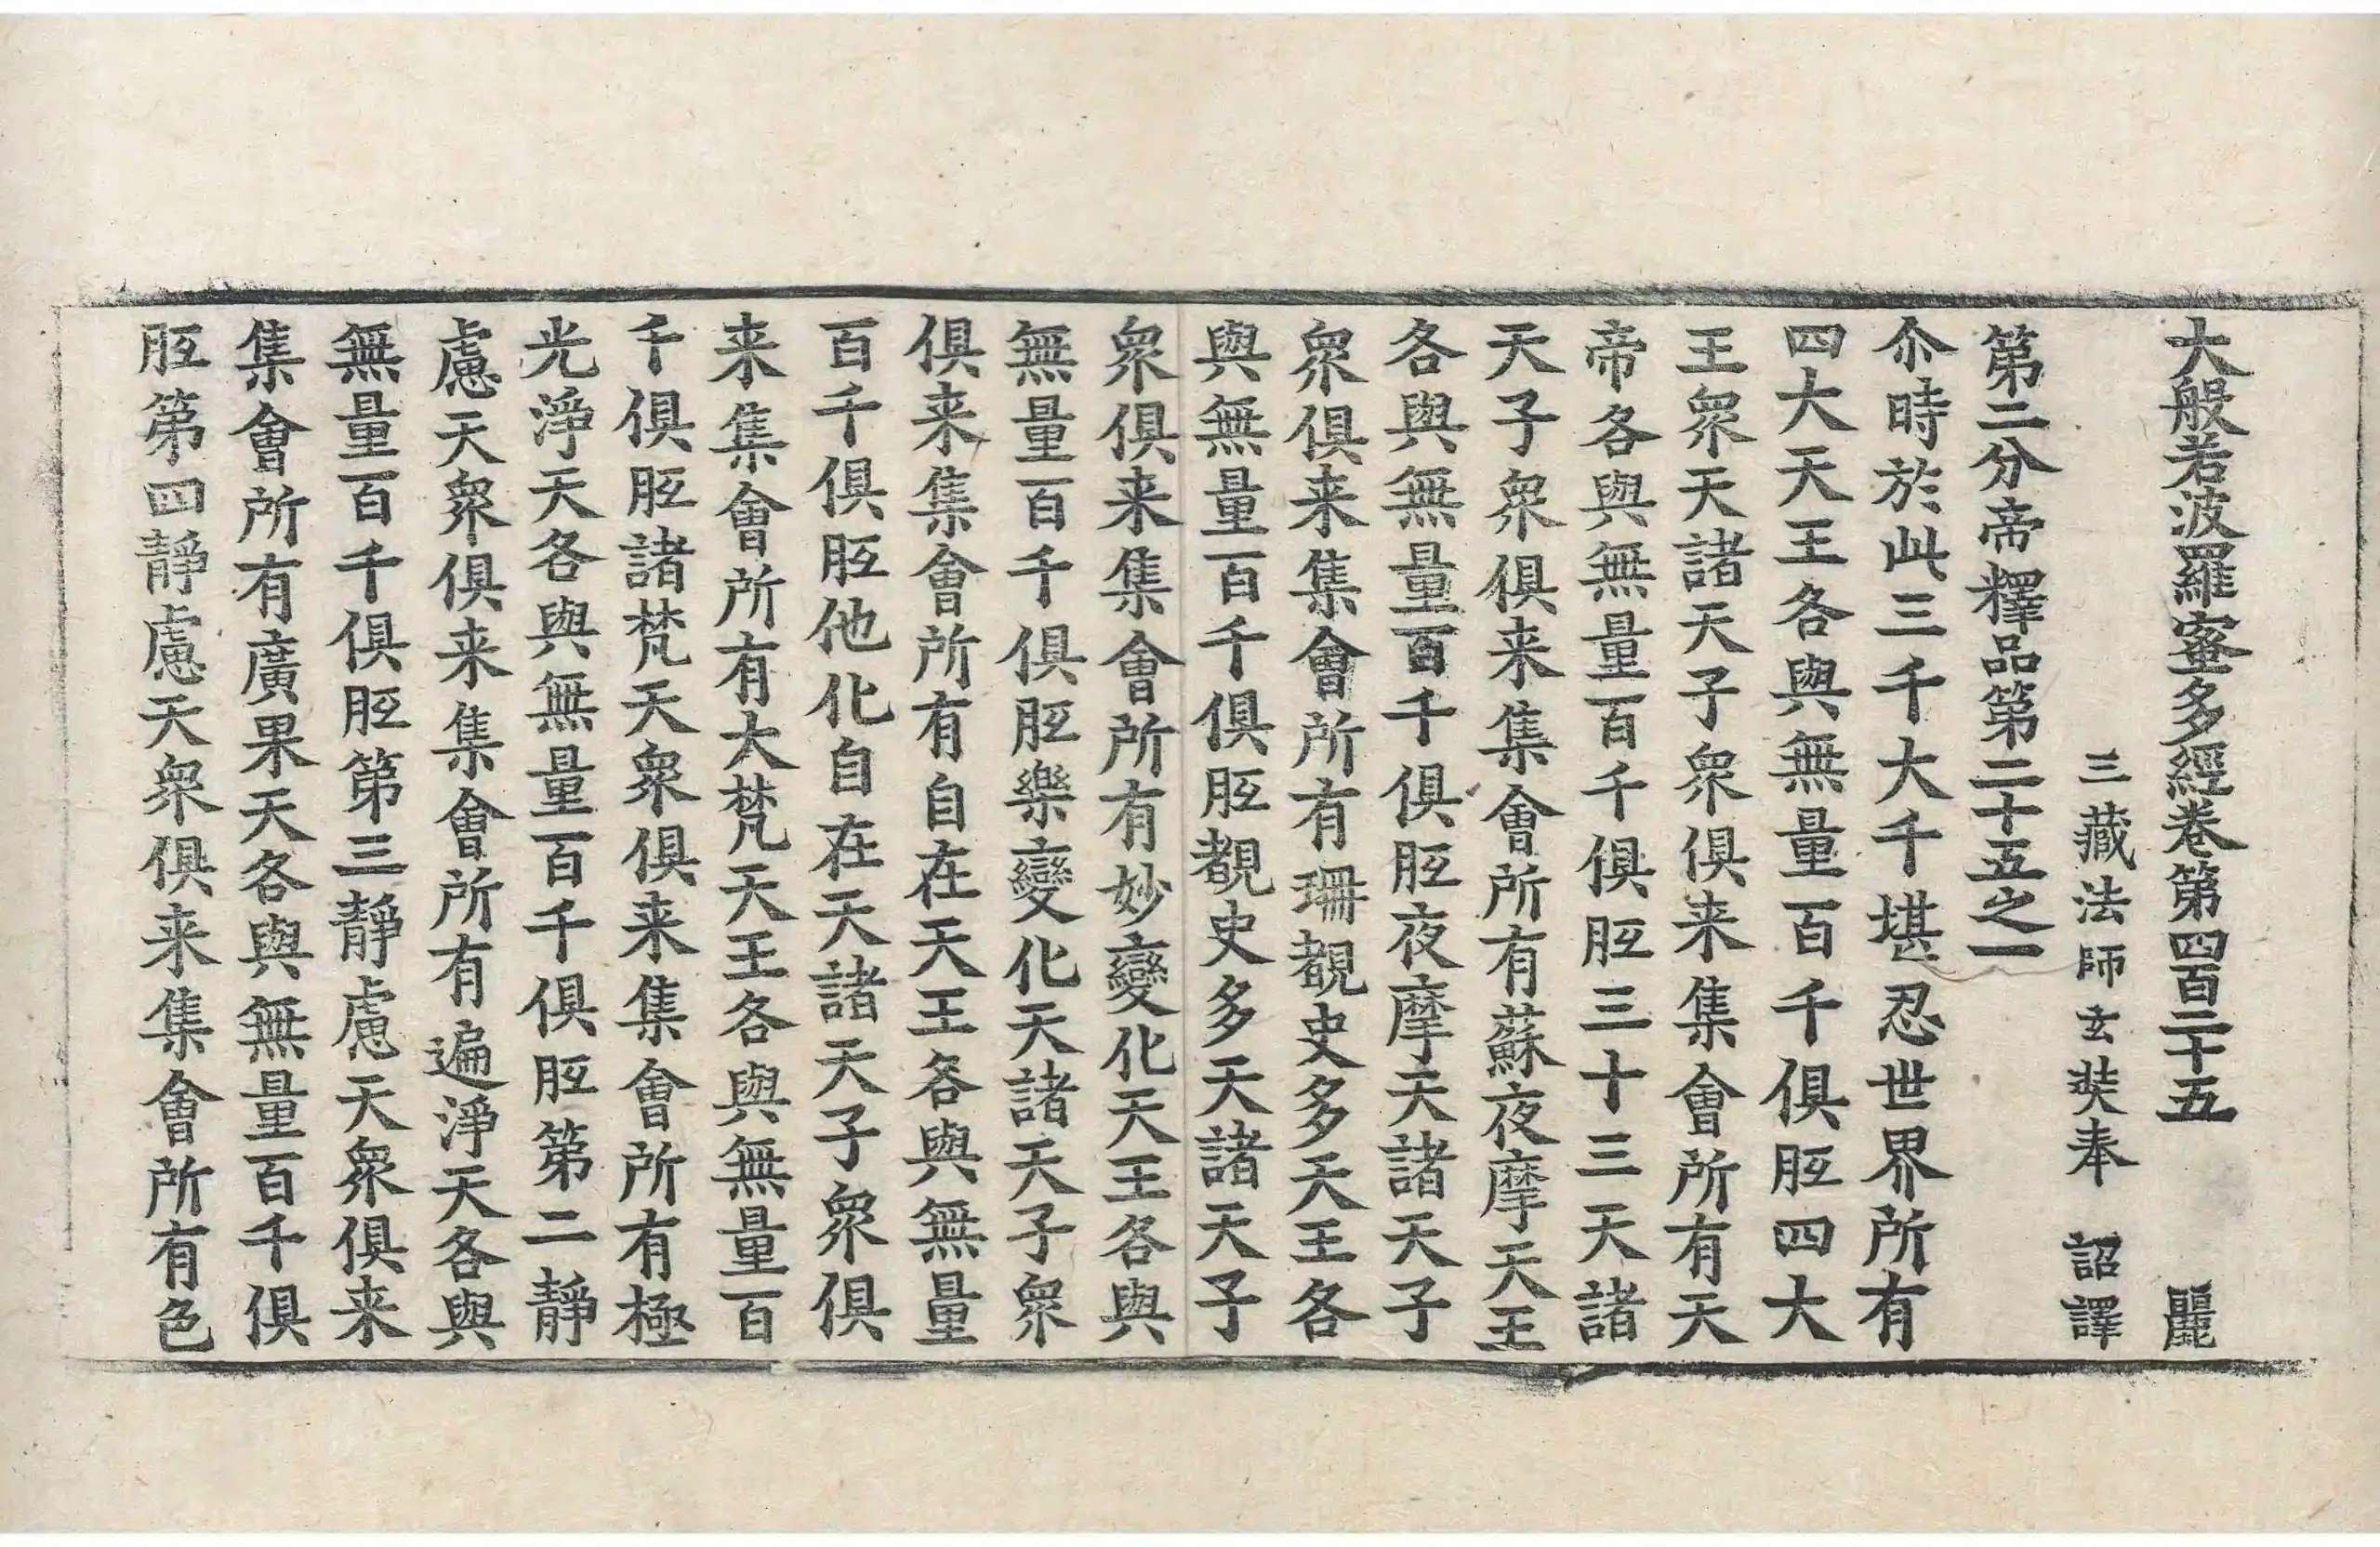 大般若波羅蜜多經卷第四百二十五 麗
三藏法師玄奘奉 詔譯
第二分帝釋品第二十五之一
尒時於此三千大千堪忍世界所有
四大天王各與無量百千俱胝四大
王衆天諸天子衆俱来集會所有天
帝各與無量百千俱胝三十三天諸
天子衆俱来集會所有蘇夜摩天王
各與無量百千俱胝夜摩天諸天子
衆俱来集會所有珊覩史多天王各
與無量百千俱胝覩史多天諸天子
衆俱来集會所有妙變化天王各與
無量百千俱胝樂變化天諸天子衆
俱来集會所有自在天王各與無量
百千俱胝他化自在天諸天子衆俱
来集會所有大梵天王各與無量百
千俱胝諸梵天衆俱来集會所有極
光淨天各與無量百千俱胝第二靜
慮天衆俱来集會所有遍淨天各與
無量百千俱胝第三靜慮天衆俱来
集會所有廣果天各與無量百千俱
胝第四靜慮天衆俱来集會所有色